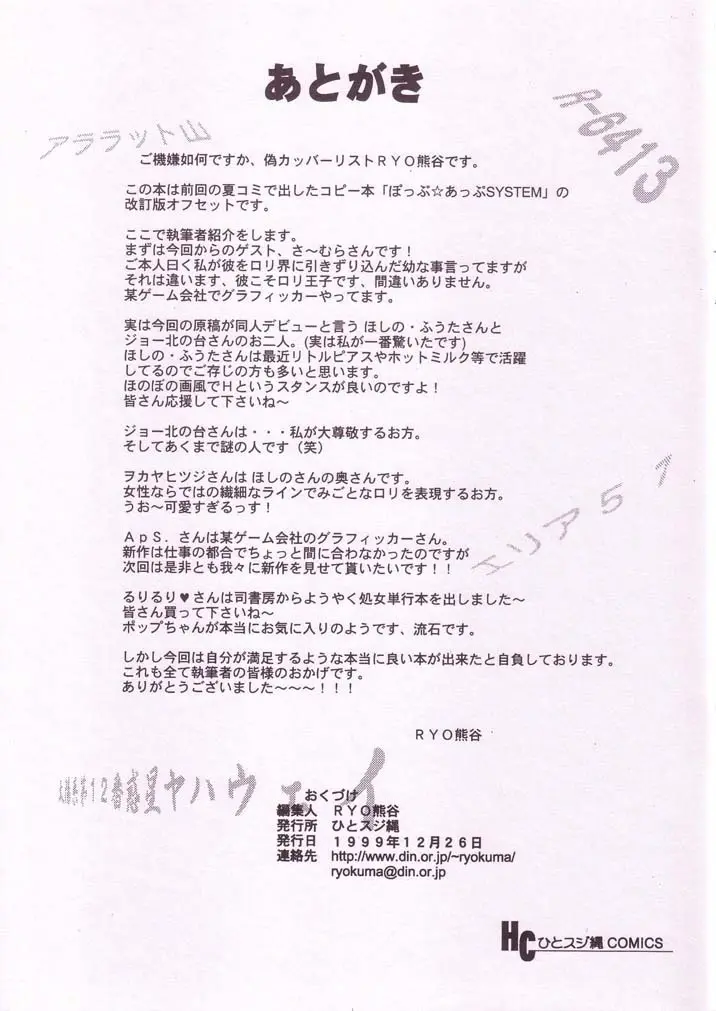 あとがき
アララット山
R-6413
ご機嫌如何ですか、偽カッバーリストRYO熊谷です。
この本は前回の夏コミで出したコピー本「ぽっぷ☆あっぷSYSTEM」の
改訂版オフセットです。
ここで執筆者紹介をします。
まずは今回からのゲスト、さ～むらさんです！
ご本人曰く私が彼をロリ界に引きずり込んだ幼な事言ってますが
それは違います、彼こそロリ王子です、間違いありません。
某ゲーム会社でグラフィッカーやってます。
実は今回の原稿が同人デビューと言う ほしの・ふうたさんと
ジョー北の台さんのお二人。(実は私が一番驚いたです)
ほしの・ふうたさんは最近リトルピアスやホットミルク等で活躍
してるのでご存じの方も多いと思います。
ほのぼの画風でHというスタンスが良いのですよ！
皆さん応援して下さいね～
ジョー北の台さんは・・・私が大尊敬するお方。
そしてあくまで謎の人です（笑）
ヲカヤヒツジさんは ほしのさんの奥さんです。
女性ならではの繊細なラインでみごとなロリを表現するお方。
うお～可愛すぎるっす！
エリア５１
ＡｐＳ．さんは某ゲーム会社のグラフィッカーさん。
新作は仕事の都合でちょっと間に合わなかったのですが
次回は是非とも我々に新作を見せて貰いたいです！！
るりるり♥さんは司書房からようやく処女単行本を出しました～
皆さん買って下さいね～
ポップちゃんが本当にお気に入りのようです、流石です。
しかし今回は自分が満足するような本当に良い本が出来たと自負しております。
これも全て執筆者の皆様のおかげです。
ありがとうございました～～～！！！
RYO熊谷
12番惑星ヤハウェイ
おくづけ
編集人　RYO熊谷
発行所　ひとスジ縄
発行日　１９９９年１２月２６日
連絡先　http://www.din.or.jp/~ryokuma/
ryokuma@din.or.jp
HC ひとスジ縄 COMICS